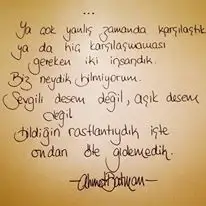 ...
Ya çok yanlış zamanda karşılaştık
ya da hiç karşılaşmaması
gereken iki insandık.
Biz neydik bilmiyorum.
Sevgili desem değil, aşık desem
değil
bildiğin rastlantıydık işte
ondan öte gidemedik.
-Ahmet Batman-